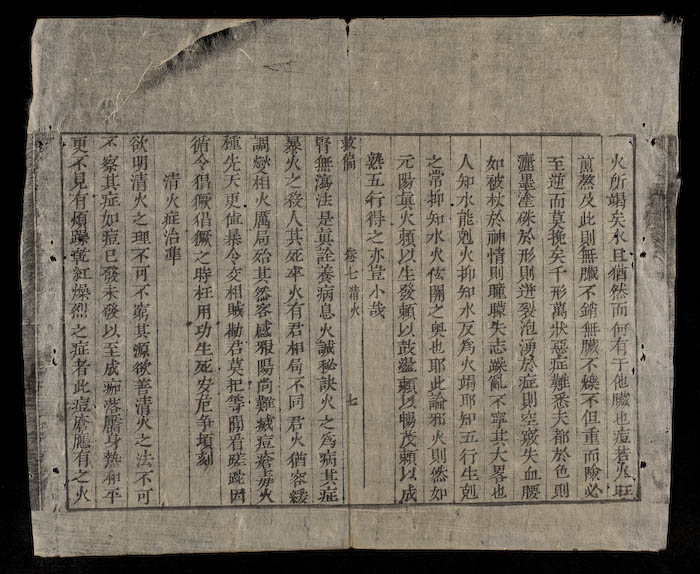 火所竭矣水且猶然而何有于他臟也痘若火旺
煎熬及此則無臟不銷無臟不爍不但重而險必
至逆而莫挽矣千形萬狀惡症難悉夫都於色則
瀝墨塗硃於形則迸裂泡湧於症則空瘢失血腰
如被杖於神情則瞳矇失志躁亂不寧其大畧也
人知水能剋火抑知水反為火竭耶知五行生剋
之常抑知水火伭關之奧也耶此論邪火則然如
元陽真火賴以生發賴以鼓盪賴以暢茂賴以成
熟五行得之亦豈小哉
救偏
卷七清火
七
腎無瀉法是真詮養病息火誠秘訣火之為病其症
暴火之殺人其死率火有君相局不同君火猶容緩
調燮相火厲局殆其然客感猥陽尚難滅痘瘡毒火
種先天更值暴令交相賊勸君莫把等閒看蹉跎因
循令猖獗猖獗之時枉用功生死安危爭頃刻
清火症治準
欲明清火之理不可不窮其源欲善清火之法不可
不察其症如痘已發未發以至成痂落靨身熱和平
更不見有煩躁乾紅燥烈之症者此痘瘡應有之火